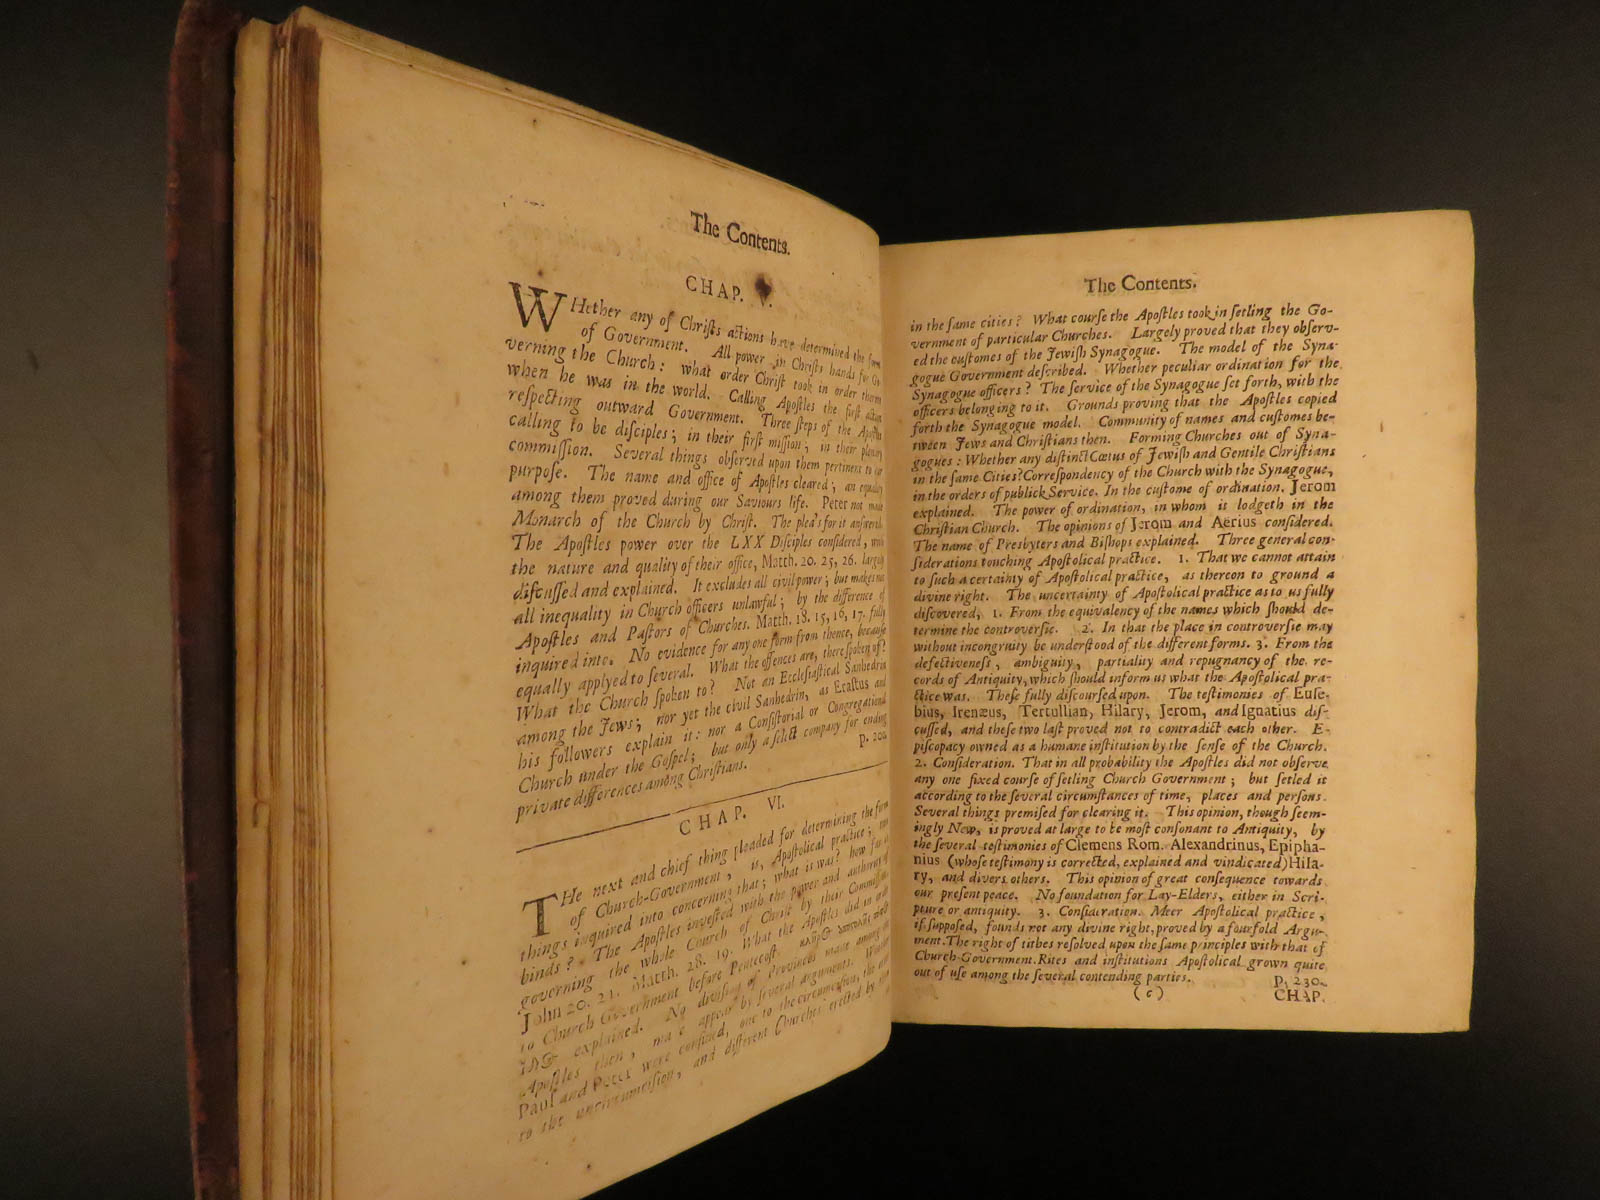 The Contents.
CHAP. V.
WHether any of Christs actions have determined the form
of Government. All power in Christs hands for Go-
verning the Church: what order Christ took in order thereto
when he was in the world. Calling Apostles the first action
respecting outward Government. Three steps of the Apostles
calling to be disciples; in their first mission; in their plenary
commission. Several things observed upon them pertinent to our
purpose. The name and office of Apostles cleared; an equality
among them proved during our Saviours life. Peter not made
Monarch of the Church by Christ. The plea's for it answered.
The Apostles power over the LXX Disciples considered, with
the nature and quality of their office, Matth. 20. 25, 26. largely
discussed and explained. It excludes all civil power; but makes not
all inequality in Church officers unlawful; by the difference of
Apostles and Pastors of Churches. Matth. 18. 15, 16, 17. fully
inquired into. No evidence for any one form from thence, because
equally applyed to several. What the offences are, there spoken of?
What the Church spoken to? Not an Ecclesiastical Sanhedrin
among the Jews; nor yet the civil Sanhedrin, as Erastus and
his followers explain it: nor a Consistorial or Congregational
Church under the Gospel; but only a select company for ending
private differences among Christians. p. 200
CHAP. VI.
THe next and chief thing pleaded for determining the form
of Church-Government, is, Apostolical practice; two
things inquired into concerning that; what it was? how far it
binds? The Apostles invested with the power and authority of
governing the whole Church of Christ by their Commission,
John 20. 21. Matth. 28. 19. What the Apostles did in order
to Church Government before Pentecost.
explained. No division of Provinces made among the
Apostles then, made appear by several arguments. Whether
Paul and Peter were confined, one to the circumcision, the other
to the uncircumcision, and different Churches erected by them
The Contents.
in the same cities? What course the Apostles took in setling the Go-
vernment of particular Churches. Largely proved that they observ-
ed the customes of the Jewish Synagogue. The model of the Syna-
gogue Government described. Whether peculiar ordination for the
Synagogue officers? The service of the Synagogue set forth, with the
officers belonging to it. Grounds proving that the Apostles copied
forth the Synagogue model. Community of names and customes be-
tween Jews and Christians then. Forming Churches out of Syna-
gogues: Whether any distinct Cœtus of Jewish and Gentile Christians
in the same Cities? Correspondency of the Church with the Synagogue,
in the orders of publick Service. In the custome of ordination. Jerom
explained. The power of ordination, in whom it lodgeth in the
Christian Church. The opinions of Jerom and Aërius considered.
The name of Presbyters and Bishops explained. Three general con-
siderations touching Apostolical practice. 1. That we cannot attain
to such a certainty of Apostolical practice, as thereon to ground a
divine right. The uncertainty of Apostolical practice as to us fully
discovered, 1. From the equivalency of the names which should de-
termine the controversie. 2. In that the place in controversie may
without incongruity be understood of the different forms. 3. From the
defectiveness, ambiguity, partiality and repugnancy of the re-
cords of Antiquity, which should inform us what the Apostolical pra-
ctice was. These fully discoursed upon. The testimonies of Euse-
bius, Irenæus, Tertullian, Hilary, Jerom, and Ignatius dis-
cussed, and these two last proved not to contradict each other. E-
piscopacy owned as a humane institution by the sense of the Church.
2. Consideration. That in all probability the Apostles did not observe
any one fixed course of setling Church Government; but setled it
according to the several circumstances of time, places and persons.
Several things premised for clearing it. This opinion, though seem-
ingly New, is proved at large to be most consonant to Antiquity, by
the several testimonies of Clemens Rom. Alexandrinus, Epipha-
nius (whose testimony is corrected, explained and vindicated) Hila-
ry, and divers others. This opinion of great consequence towards
our present peace. No foundation for Lay-Elders, either in Scri-
pture or antiquity. 3. Consideration. Meer Apostolical practice,
if supposed, founds not any divine right, proved by a fourfold Argu-
ment. The right of tithes resolved upon the same principles with that of
Church-Government. Rites and institutions Apostolical grown quite
out of use among the several contending parties. p. 230.
(c) CHAP.